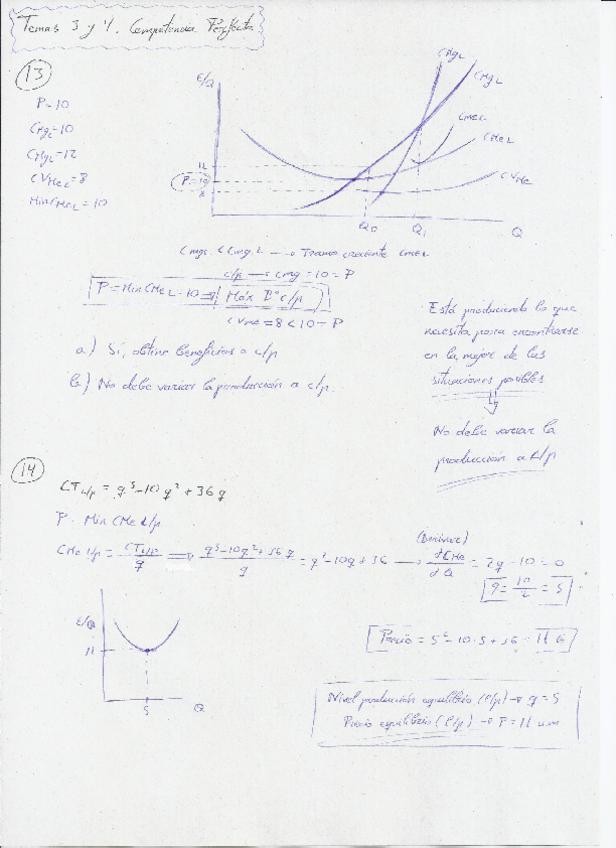 Temas 3 y 4. Competencia Perfecta
13
P=10
CMgc=10
CMgL=12
CVMec=8
MinCMeL=10
€/Q
12
P=10
8
CMgc
CMgL
CMec
CMeL
CVMe
Q0
Q1
Q
Cmgc < CmgL → Tramo creciente CMeL
c/p → Cmg=10=P
P=MinCMeL=10 → Máx Bº c/p
CVMe=8<10=P
a) Sí, obtiene beneficios a c/p
b) No debe variar la producción a c/p.
Está produciendo lo que
necesita para encontrarse
en la mejor de las
situaciones posibles
No debe variar la
producción a L/p
14
CT L/p = q³-10q²+36q
P=MinCMe L/p
(Derivar)
CMe L/p = CT L/p / q ⟹ q³-10q²+36q / q = q²-10q+36 → dCMe / dQ = 2q-10=0
q = 10/2 = 5
€/Q
11
5
Q
Precio = 5²-10·5+36 = 11€
Nivel producción equilibrio (l/p) → q=5
Precio equilibrio (l/p) → P=11 u.m